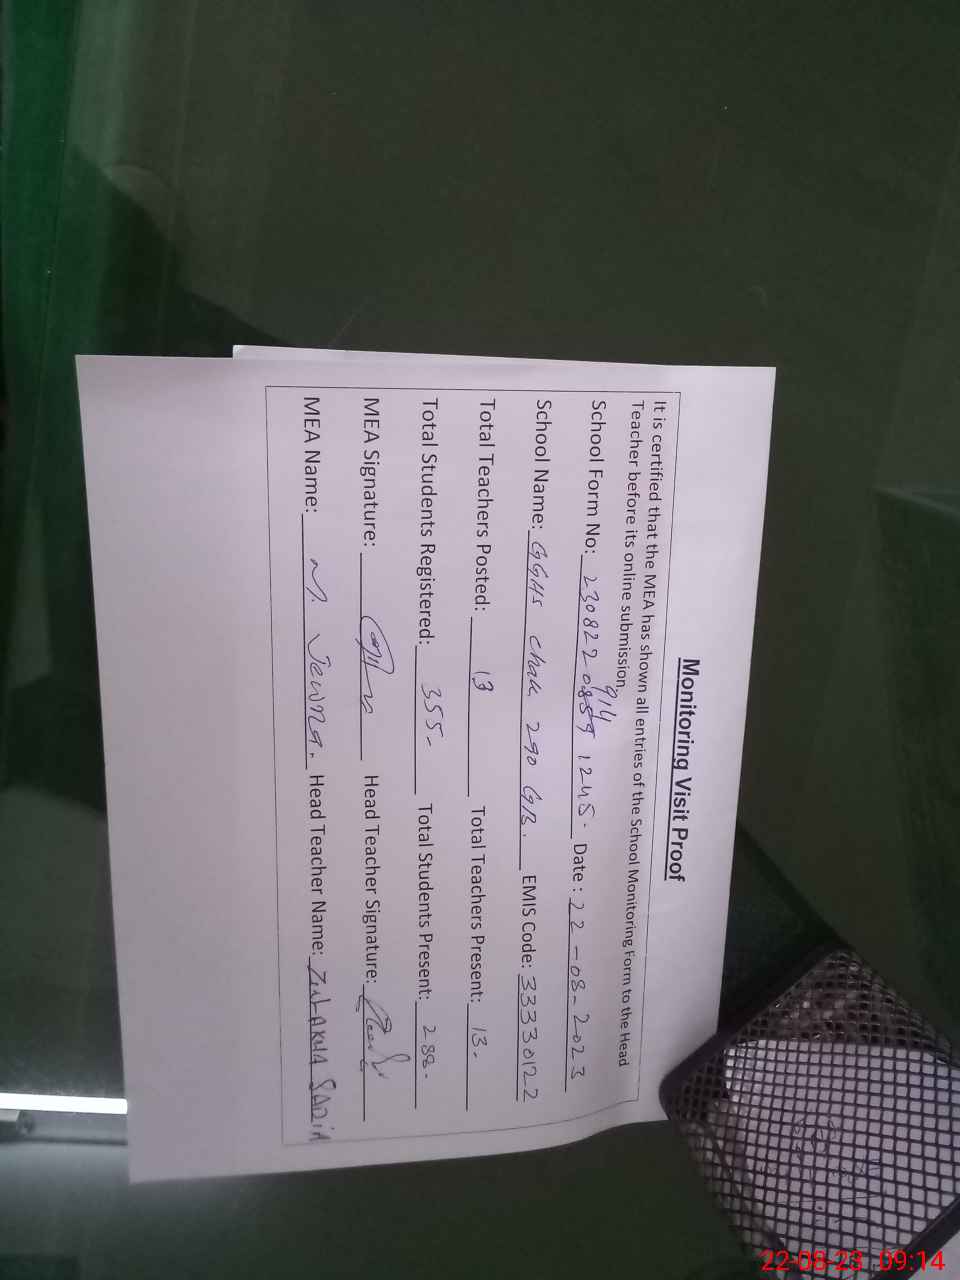 Monitoring Visit Proof
It is certified that the MEA has shown all entries of the School Monitoring Form to the Head
Teacher before its online submission.
914
School Form No: 2308220859 1245. Date : 22-08-2023
School Name: GGHS Chak 290 GB. EMIS Code: 33330122
Total Teachers Posted: 13 Total Teachers Present: 13.
Total Students Registered: 355- Total Students Present: 288-
MEA Signature: Head Teacher Signature:
MEA Name: Head Teacher Name: SADIA
22-08-23 09:14